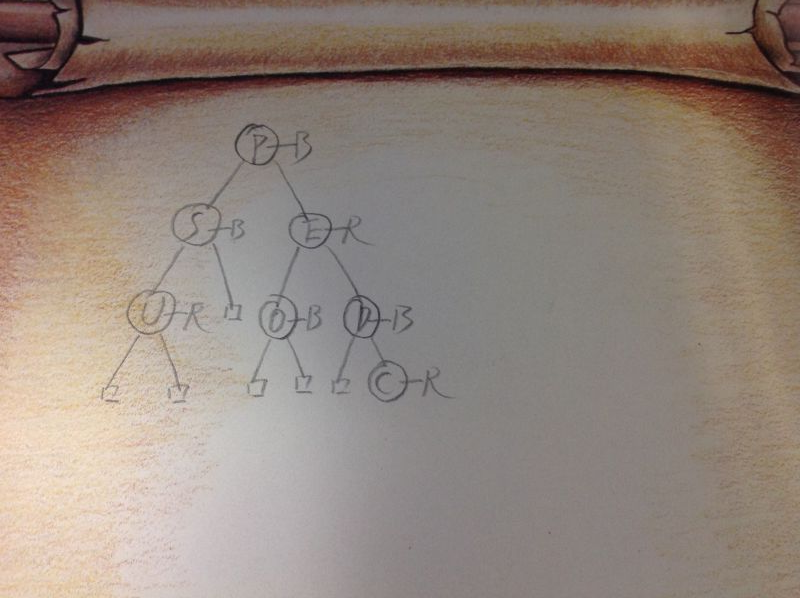 P-B
S-B E-R
U-R O-B D-B
C-R